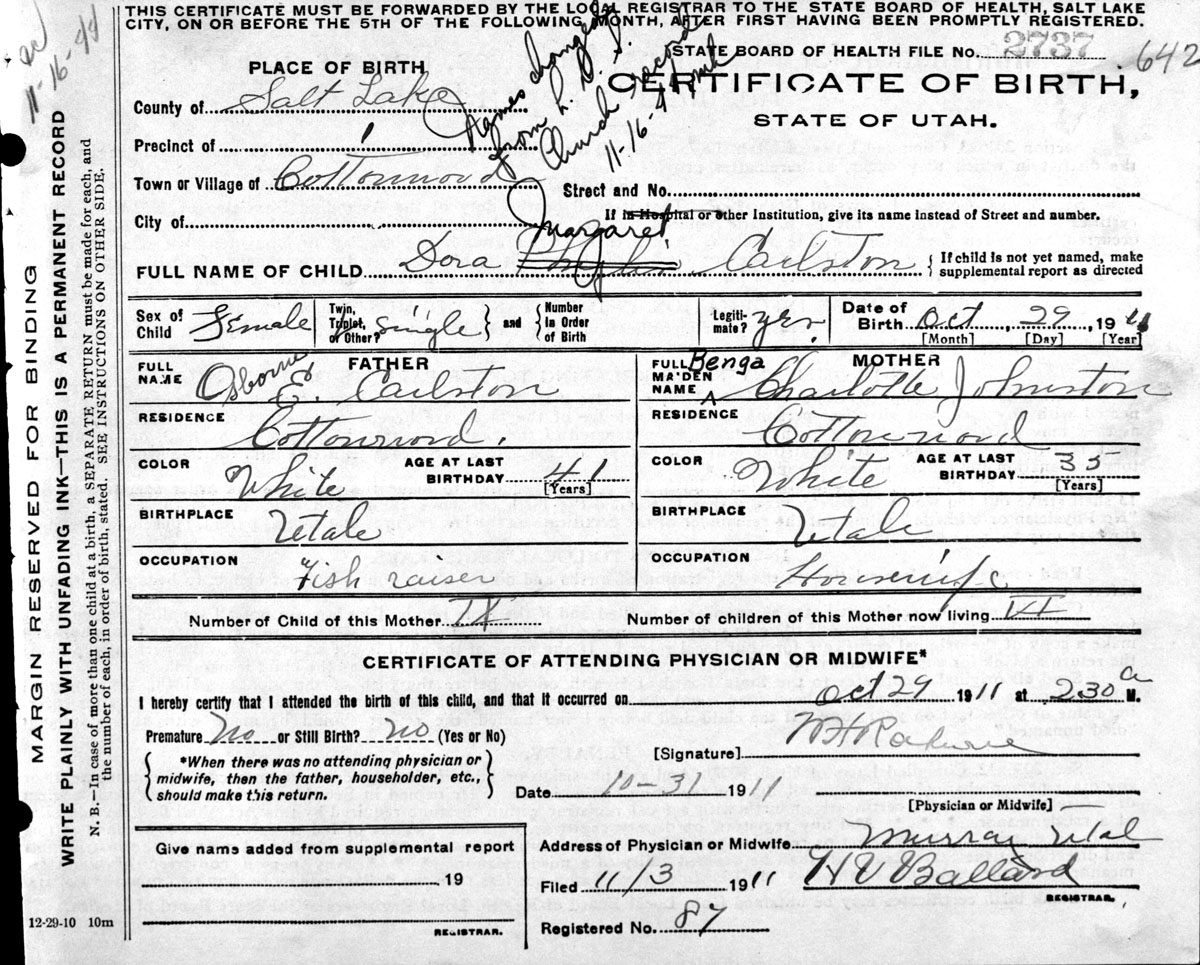 THIS CERTIFICATE MUST BE FORWARDED BY THE LOCAL REGISTRAR TO THE STATE BOARD OF HEALTH, SALT LAKE
CITY, ON OR BEFORE THE 5TH OF THE FOLLOWING MONTH, AFTER FIRST HAVING BEEN PROMPTLY REGISTERED.
11-16-44
STATE BOARD OF HEALTH FILE No. 2737 642
PLACE OF BIRTH
CERTIFICATE OF BIRTH,
STATE OF UTAH.
Names changed
from L. D. S.
Church record
11-16-4
County of Salt Lake
Precinct of 1
Town or Village of Cottonwood
Street and No.
City of
If in Hospital or other Institution, give its name instead of Street and number.
Margaret
FULL NAME OF CHILD Dora Carlston
{ If child is not yet named, make
supplemental report as directed
Sex of Child Female
Twin, Triplet, or Other? Single } and { Number In Order of Birth
Legiti-mate? yes
Date of Birth Oct, 29, 1911
[Month] [Day] [Year]
FATHER
FULL NAME Osborne E. Carlston
RESIDENCE
Cottonwood.
COLOR White AGE AT LAST BIRTHDAY 41 [Years]
BIRTHPLACE
Utah
OCCUPATION
Fish raiser
MOTHER
FULL MAIDEN NAME Benga Charlotte Johnston
RESIDENCE
Cottonwood
COLOR White AGE AT LAST BIRTHDAY 35 [Years]
BIRTHPLACE
Utah
OCCUPATION
Housewife
Number of Child of this Mother
Number of children of this Mother now living VI
CERTIFICATE OF ATTENDING PHYSICIAN OR MIDWIFE*
I hereby certify that I attended the birth of this child, and that it occurred on Oct 29 1911 at 2.30 a M.
Premature No or Still Birth? No (Yes or No)
[Signature]
{ *When there was no attending physician or
midwife, then the father, householder, etc.,
should make this return. }
Date 10-31 1911
[Physician or Midwife]
Give name added from supplemental report
19
REGISTRAR.
Address of Physician or Midwife Murray Utah
Filed 11/3 1911 H V Ballard
REGISTRAR.
Registered No. 87
12-29-10 10m
MARGIN RESERVED FOR BINDING
WRITE PLAINLY WITH UNFADING INK—THIS IS A PERMANENT RECORD
N. B.—In case of more than one child at a birth, a SEPARATE RETURN must be made for each, and
the number of each, in order of birth, stated. SEE INSTRUCTIONS ON OTHER SIDE.